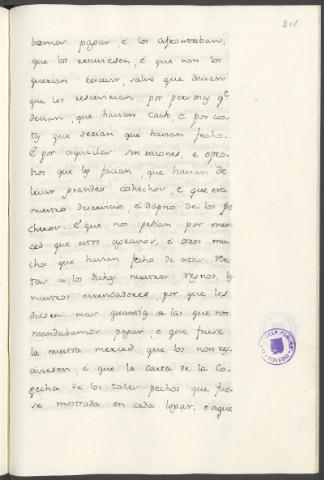 211
bamos pagar e los afrontaban,
que los rescibiesen, e que non los
querian rescivir, salvo que decian
que los rescivirian, por pero
decian, que havian caro, e por cos
tas que decian que havian fecho.
E por aquellas sin raçones, e opro
bios que les facian, que havian de
levar grandes cohechos, e que era
nuestro deservicio, e dapno de los pe
cheros. E que nos pedian por mer
ced que estos agravios, e otros mu
chos que havian fecho de
a los dichos nuestros regnos, los
nuestros arrendadores, por que les
diesen mas quantia de las que nos
mandabamos pagar, e que fuese
la nuestra merced, que los non res
civiesen, e que la carta de la Co
gecha de los tales pechos que fue
se mostrada en cada logar, e aque